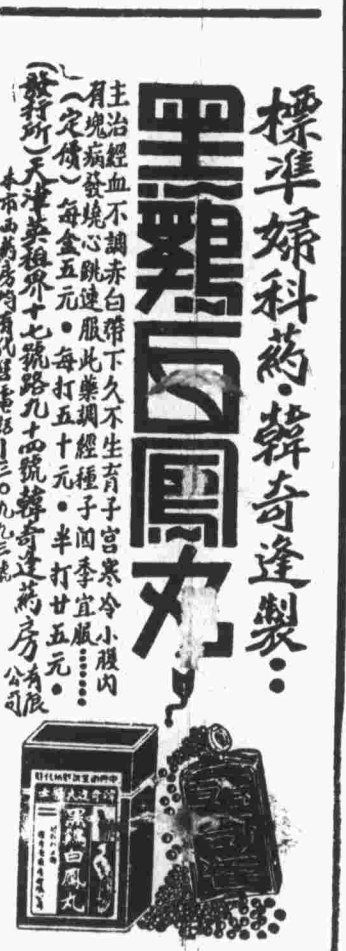 標準婦科葯·韓奇逢製
黑鷄白鳳丸
主治經血不調赤白帶下久不生育子宮寒冷小腹内
有塊病發繞心跳速服此藥調經種子四季宜服
（定價）每盒五元·每打五十元·半打廿五元·
（發行所）天津英租界十七號路九十四號韓奇逢葯房有限公司
本市西葯房均有代售
黑鷄白鳳丸